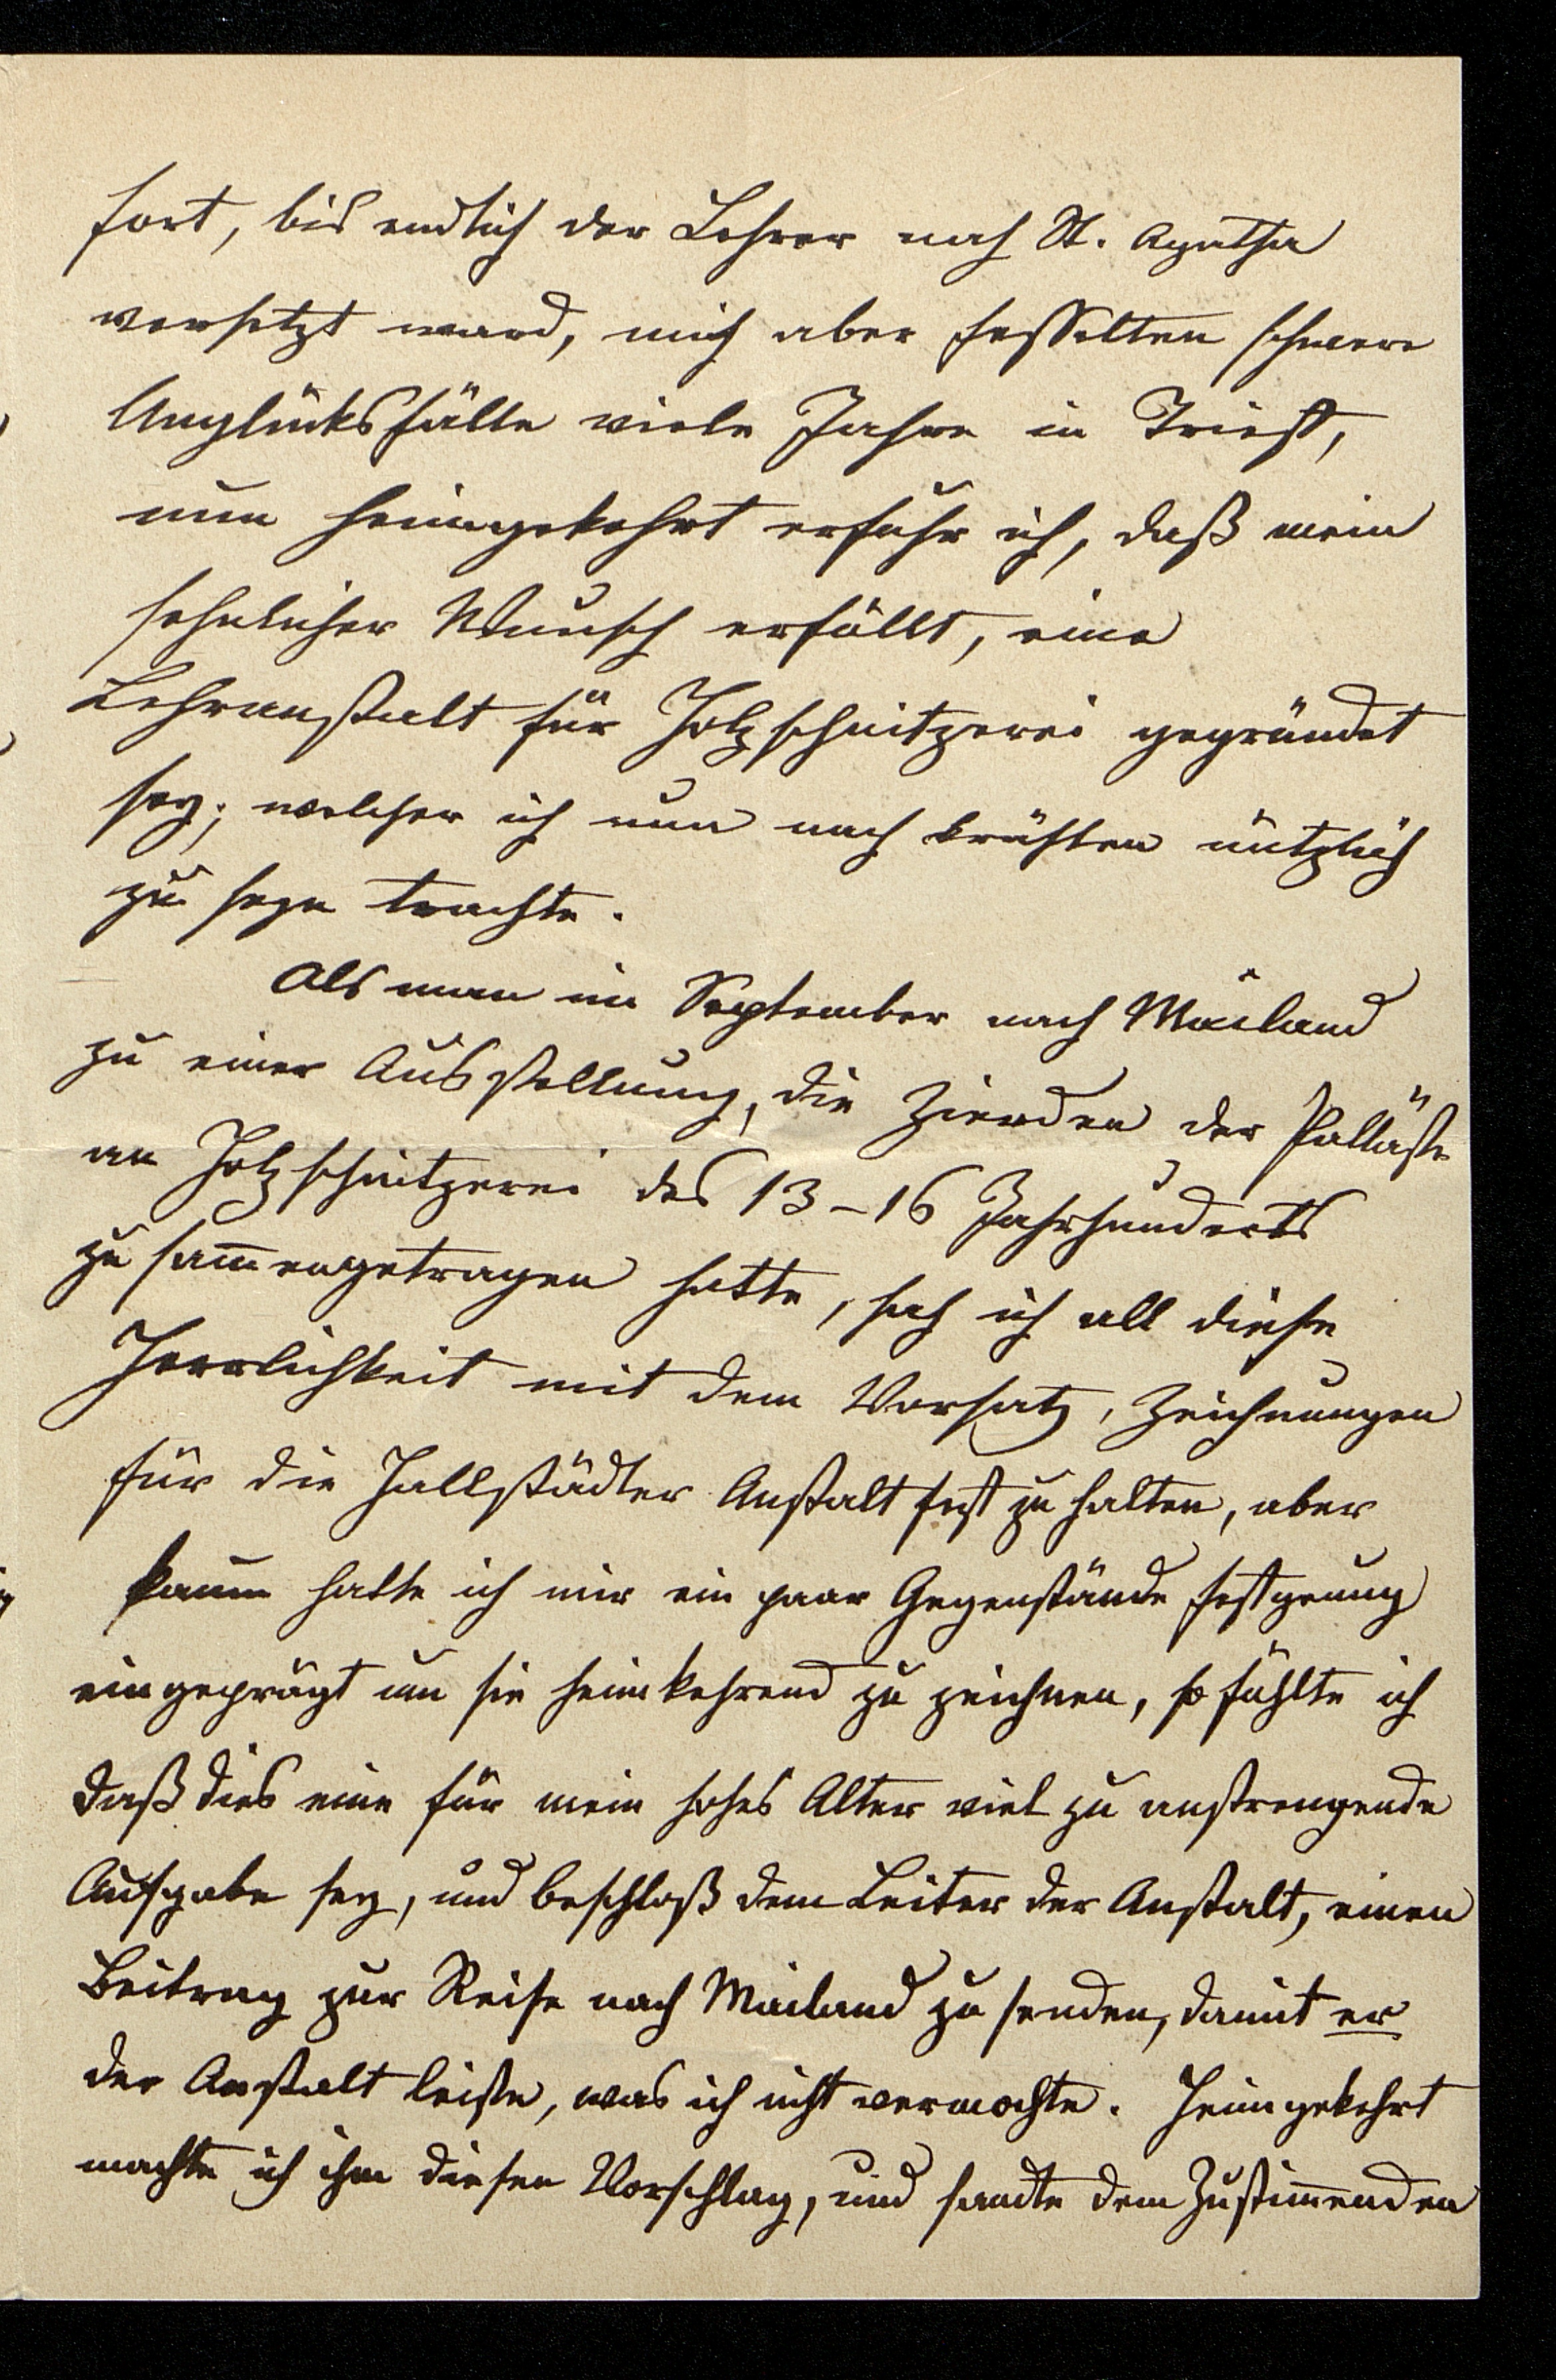 fort, bis endlich der Lehrer nach St. Agatha
versetzt ward, mich aber fesselten schwere
Unglücksfälle viele Jahre in Triest,
nun heimgekehrt erfuhr ich, daß mein
sehnlicher Wunsch erfüllt, eine
Lehranstalt für Holzschnitzerei gegründet
sey; welcher ich nun nach Kräften nützlich
zu seyn trachte.
Als man im September nach Mailand
zu einer Ausstellung, die Zierden der Palläste
an Holzschnitzerei des 13-16 Jahrhunderts
zusam̅engetragen hatte, sah ich all diese
Herrlichkeit mit dem Vorsatz, Zeichnungen
für die Hallstädter Anstalt fest zu halten, aber
kaum hatte ich mir ein paar Gegenstände fest genug
eingeprägt um sie heimkehrend zu zeichnen, so fühlte ich
daß dies eine für mein hohes Alter viel zu anstrengende
Aufgabe sey, und beschloß dem Leiter der Anstalt, einen
Beitrag zur Reise nach Mailand zu senden, damit er
der Anstalt leiste, was ich nicht vermochte. Heimgekehrt
machte ich ihm diesen Vorschlag, und sandte dem Zustim̅enden